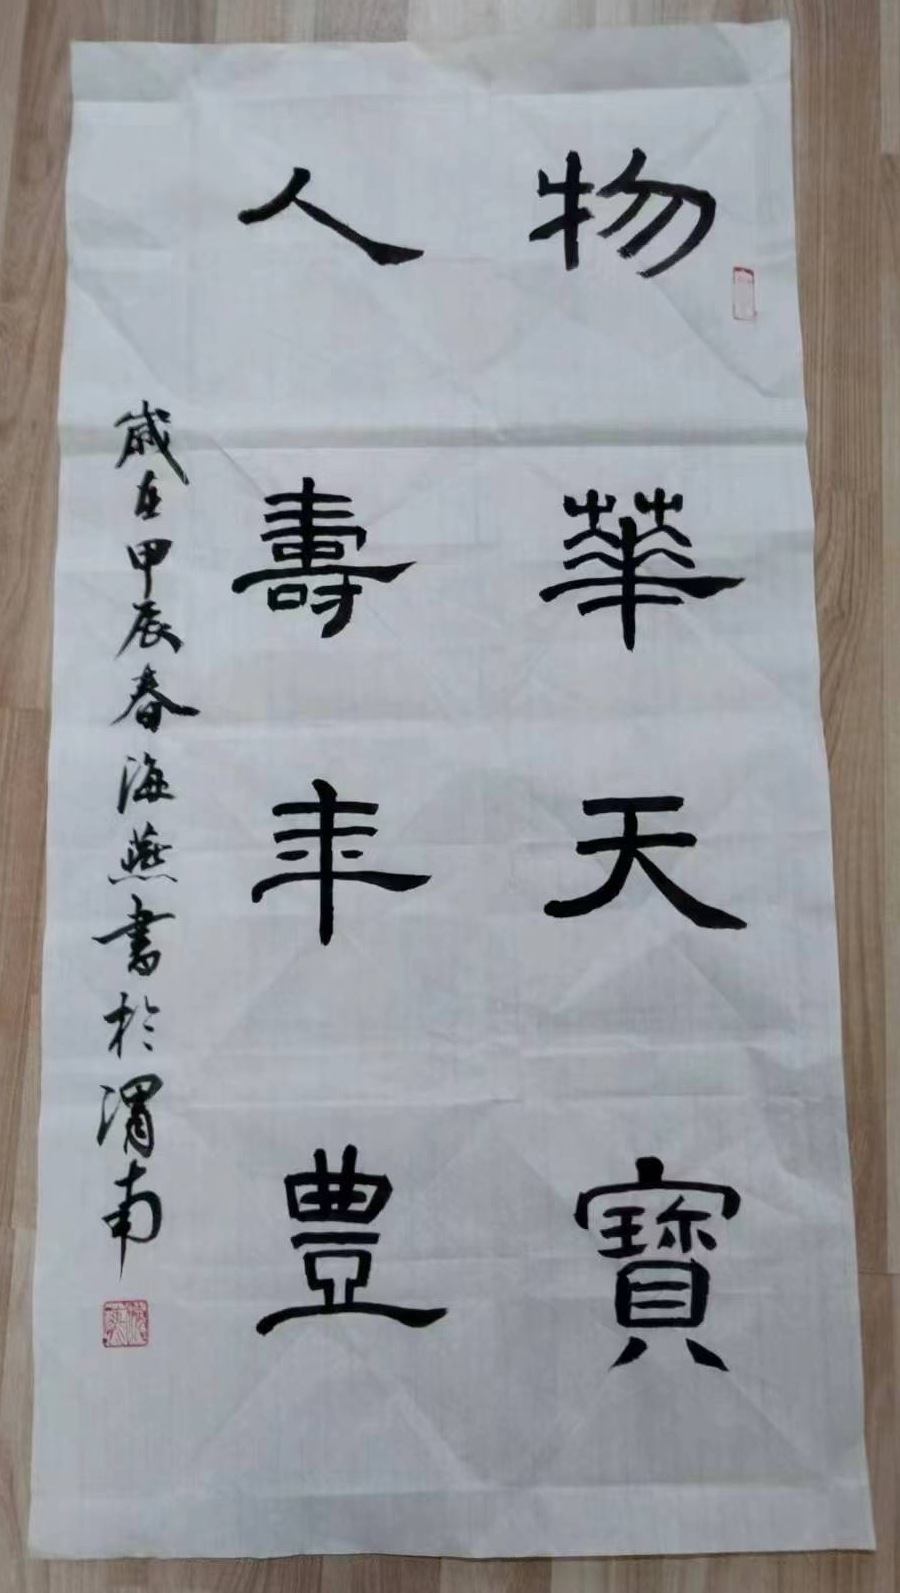 物華天寶
人壽年豊
歲在甲辰春海燕書於渭南